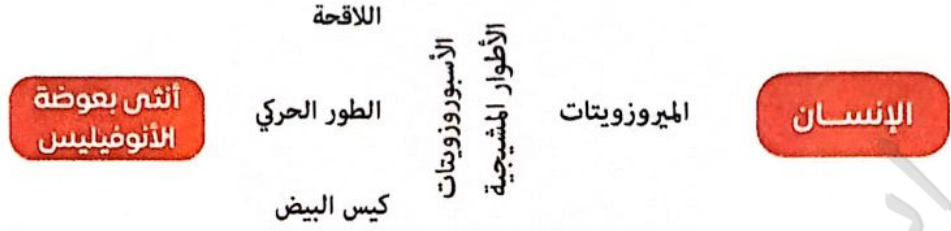 الإنســان
الميروزويتات
الأطوار المشيجية
الأسبوروزويتات
اللاقحة
الطور الحركي
كيس البيض
أنثى بعوضة
الأنوفيليس